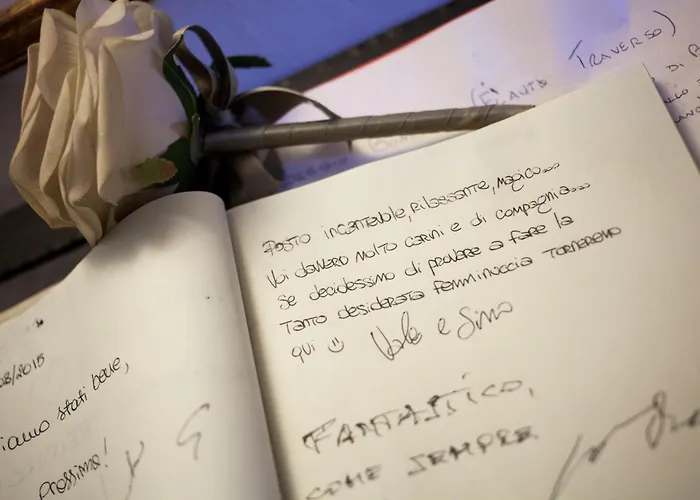 (FLAUTO TRAVERSO)
DI
08/2015
iamo stati bene,
prossima!
Posto incantevole, rilassante, magico...
Voi davvero molto carini e di compagnia...
Se decidessimo di provare a fare la
tanto desiderata femminuccia torneremo
qui
Vale e Simo
FANTASTICO,
COME SEMPRE